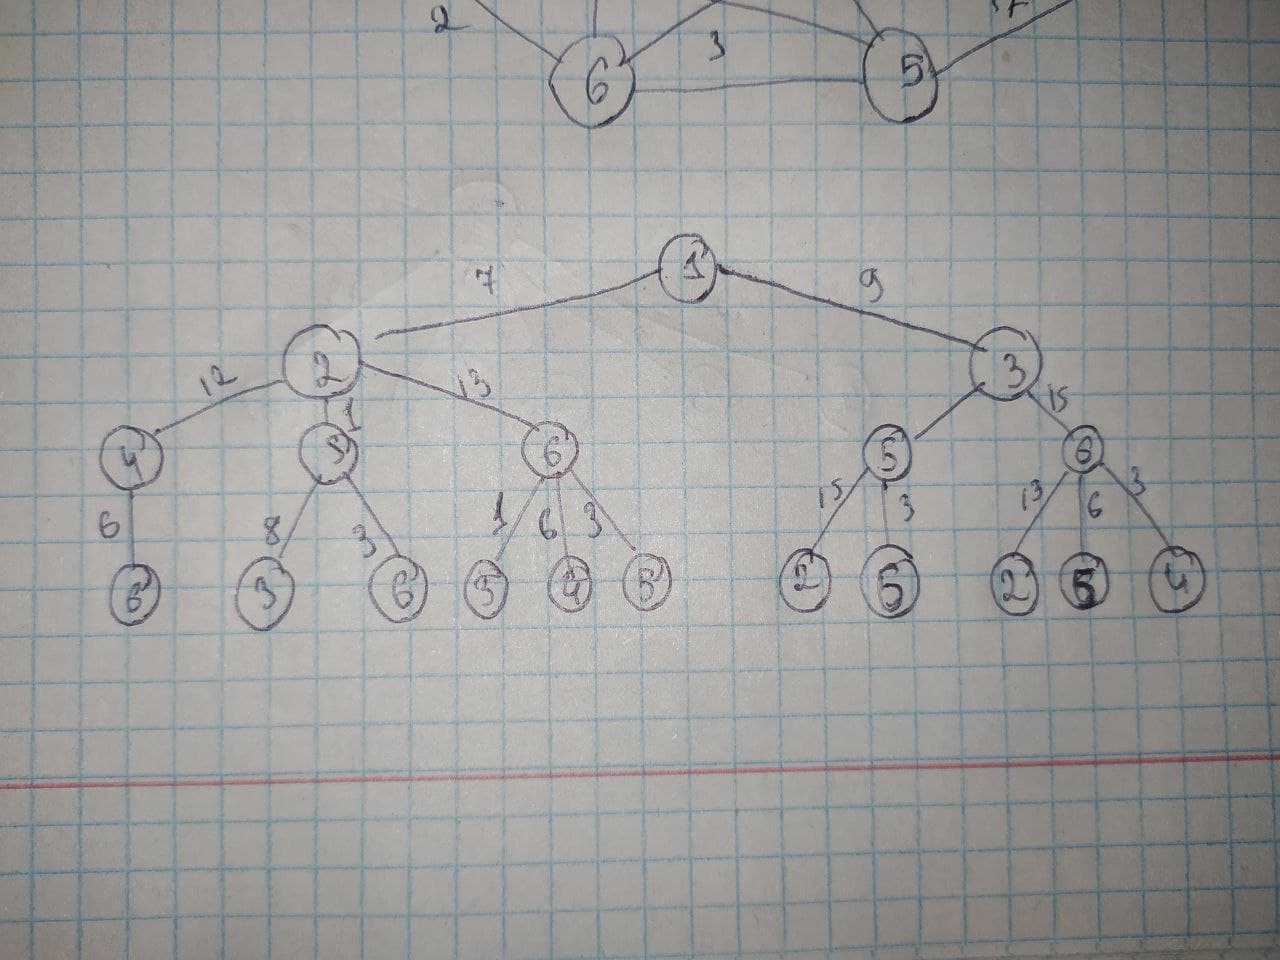 2
3
17
6
5
1
7
9
2
3
12
13
15
4
6
5
6
6
8
3
1
6
3
15
3
13
6
3
6
3
6
4
5
2
5
2
5
4